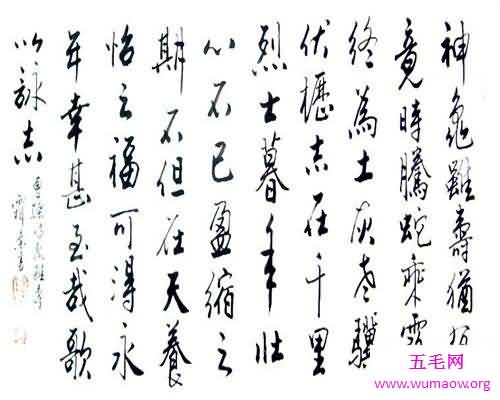 神龜雖壽猶有
竟時騰蛇乘
終為土灰老驥
伏櫪志在千里
烈士暮年壯
心不已盈縮之
期不但在天養
怡之福可得永
年幸甚至哉歌
以詠志
曹操詩龜雖壽
五毛网
www.wumaow.org